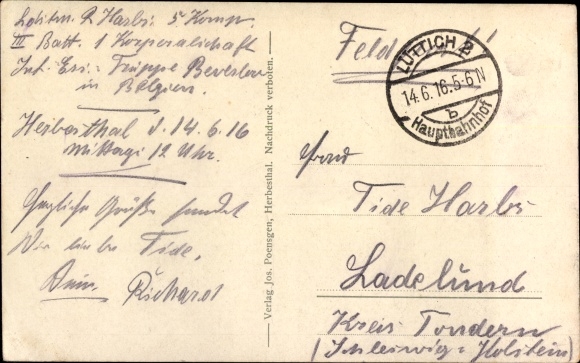 R. Harbs 5 Komp.
III Batt. 1 Korporalschaft
Inf. Ers. Truppe Beverloo
in Belgien.
Herbesthal d. 14.6.16
Mittags 12 Uhr.
Herzliche Grüße sendet
Dir liebe Tide,
Dein Richard
Verlag Jos. Poensgen, Herbesthal. Nachdruck verboten.
LÜTTICH 2
14.6.16.5-6N
b
Hauptbahnhof
Frau
Tide Harbs
Ladelund
Kreis Tondern
(Schleswig-Holstein)